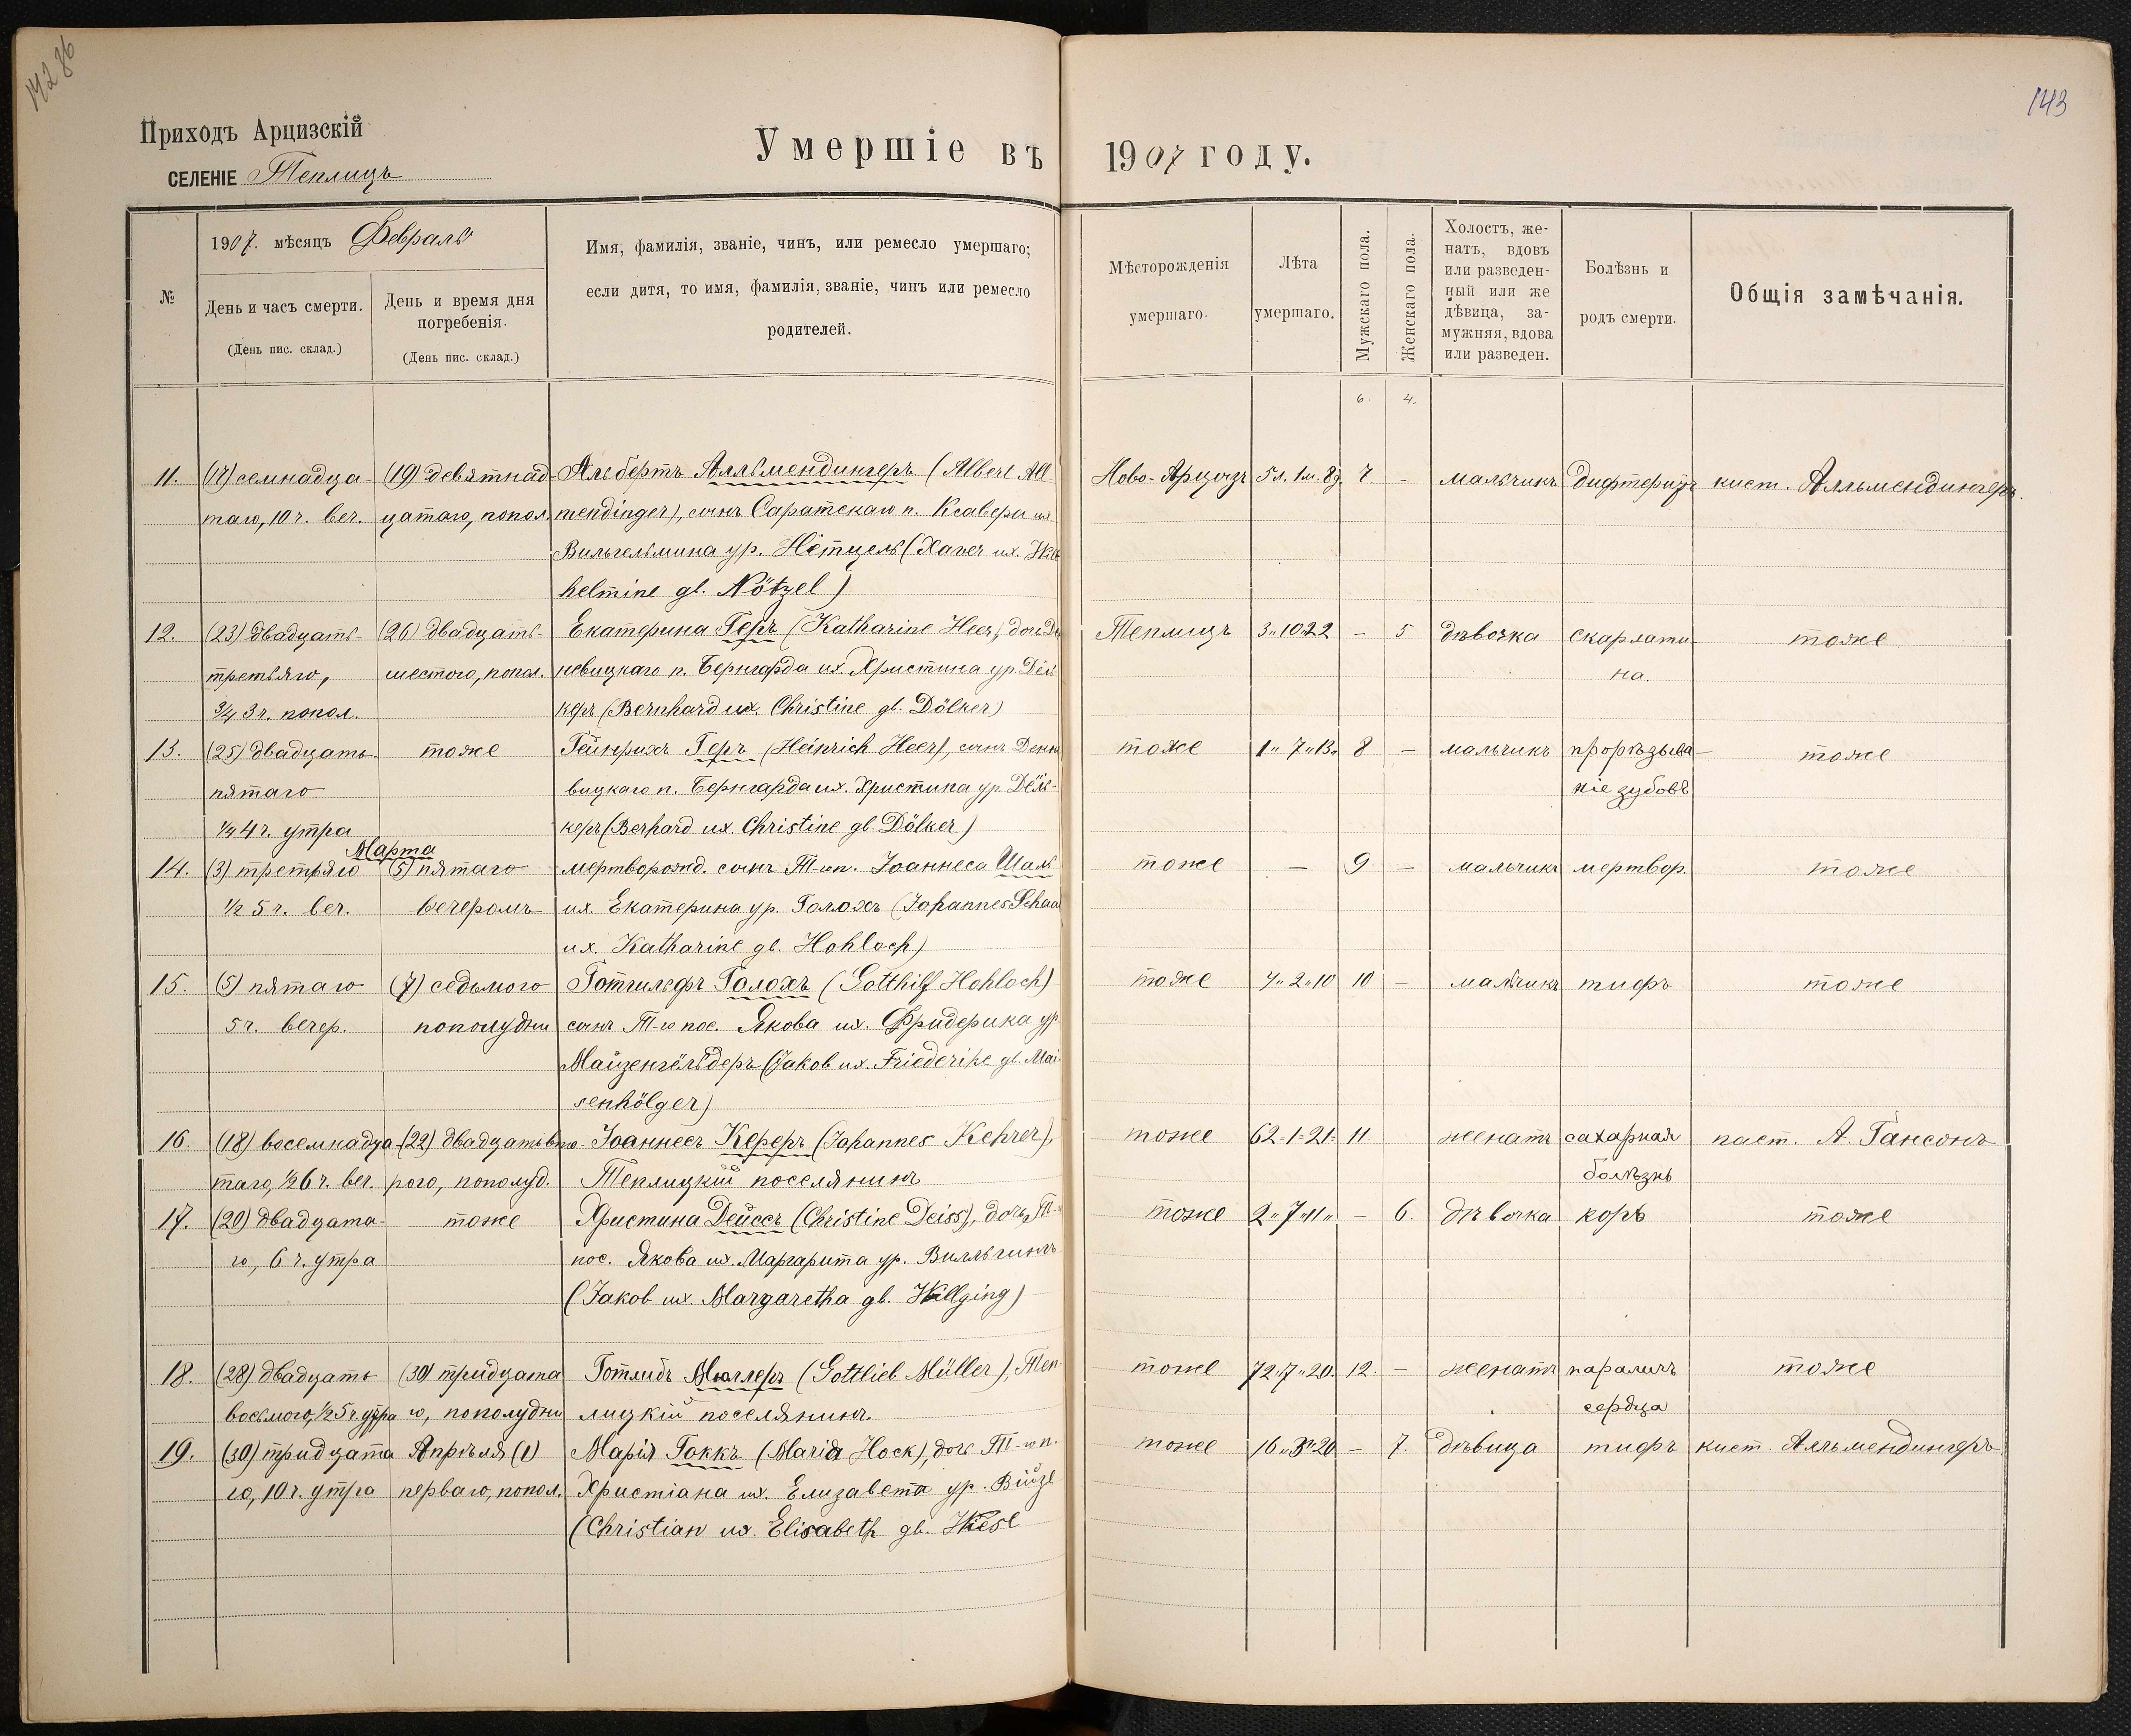 142 об
143
Приходъ Арцизскій
СЕЛЕНІЕ Теплицъ
Умершіе въ 1907 году.
№
1907. мѣсяцъ Февраль
День и часъ смерти.
(День пис. склад.)
День и время дня
погребенія.
(День пис. склад.)
Имя, фамилія, званіе, чинъ, или ремесло умершаго;
если дитя, то имя, фамилія, званіе, чинъ или ремесло
родителей.
Мѣсторожденія
умершаго.
Лѣта
умершаго.
Мужскаго пола.
Женскаго пола.
Холостъ, же-
натъ, вдовъ
или разведен-
ный или же
дѣвица, за-
мужняя, вдова
или разведен.
Болѣзнь и
родъ смерти.
Общія замѣчанія.
6. 4.
11. (17) семнадца- (19) девятнад- Альбертъ Алльмендингеръ (Albert All- Ново-Арцизъ 5л. 1м. 8д. 7. – мальчикъ дифтеритъ кист. Алльмендингеръ.
таго, 10 ч. веч. цатаго, попол. mendinger), сынъ Саратскаго п. Ксавера их
Вильгельмина ур. Нётцель (Xaver их. Wil-
helmine gb. Nötzel)
12. (23) двадцать- (26) двадцать- Екатерина Геръ (Katharine Heer), дочь Де- Теплицъ 3"10"22 – 5 дѣвочка скарлати- тоже
третьяго, шестого, попол. невицкаго п. Бернгарда их. Христина ур. Дёль- на.
3/4 3 ч. попол. керъ (Bernhard их. Christine gb. Dölker)
13. (25) двадцать- тоже Гейнрихъ Геръ (Heinrich Heer), сынъ Денне- тоже 1" 7"13" 8 – мальчикъ прорѣзыва- тоже
пятаго вицкаго п. Бернгарда их. Христина ур. Дёль- ніе зубовъ
1/4 4 ч. утра керъ (Berhard их. Christine gb. Dölker)
Марта
14. (3) третьяго (5) пятаго мертворожд. сынъ Т-го п. Іоаннеса Шааль тоже – 9 – мальчикъ мертвор. тоже
1/2 5 ч. веч. вечеромъ их. Екатерина ур. Голохъ (Johannes Schaal
их. Katharine gb. Hohloch)
15. (5) пятаго (7) седьмого Готгилфъ Голохъ (Gotthilf Hohloch) тоже 4"2"10 10 – мальчикъ тифъ тоже
5 ч. вечер. пополудни сынъ Т-го пос. Якова их. Фридерика ур.
Майзенгёльдеръ (Jakob их. Friederike gb. Mai-
senhölger)
16. (18) восемнадца- (22) двадцать вто- Іоаннесъ Кереръ (Johannes Kehrer), тоже 62=1=21= 11. женатъ сахарная паст. А. Гансонъ
таго, 1/2 6 ч. веч. рого, пополуд. Теплицкій поселянинъ болѣзнь
17. (20) двадцата- тоже Христина Дейссъ (Christine Deiss), дочь Т-го тоже 2"7"11" – 6. дѣвочка корь тоже
го, 6 ч. утра пос. Якова их. Маргарита ур. Вилльгингъ
(Jakob их. Margaretha gb. Willging)
18. (28) двадцать (30) тридцата Готлибъ Мюллеръ (Gottlieb Müller), Теп- тоже 72"7"20. 12. – женатъ параличъ тоже
восьмого, 1/2 5 ч. утра го, пополудни лицкій поселянинъ. сердца
19. (30) тридцата Апрѣля (1) Марія Гоккъ (Maria Hock), дочь Т-го п. тоже 16"3"20 – 7. дѣвица тифъ кист. Алльмендингеръ
го, 10 ч. утра перваго, попол. Христіана их. Елизавета ур. Визе
(Christian их. Elisabeth gb. Wiese